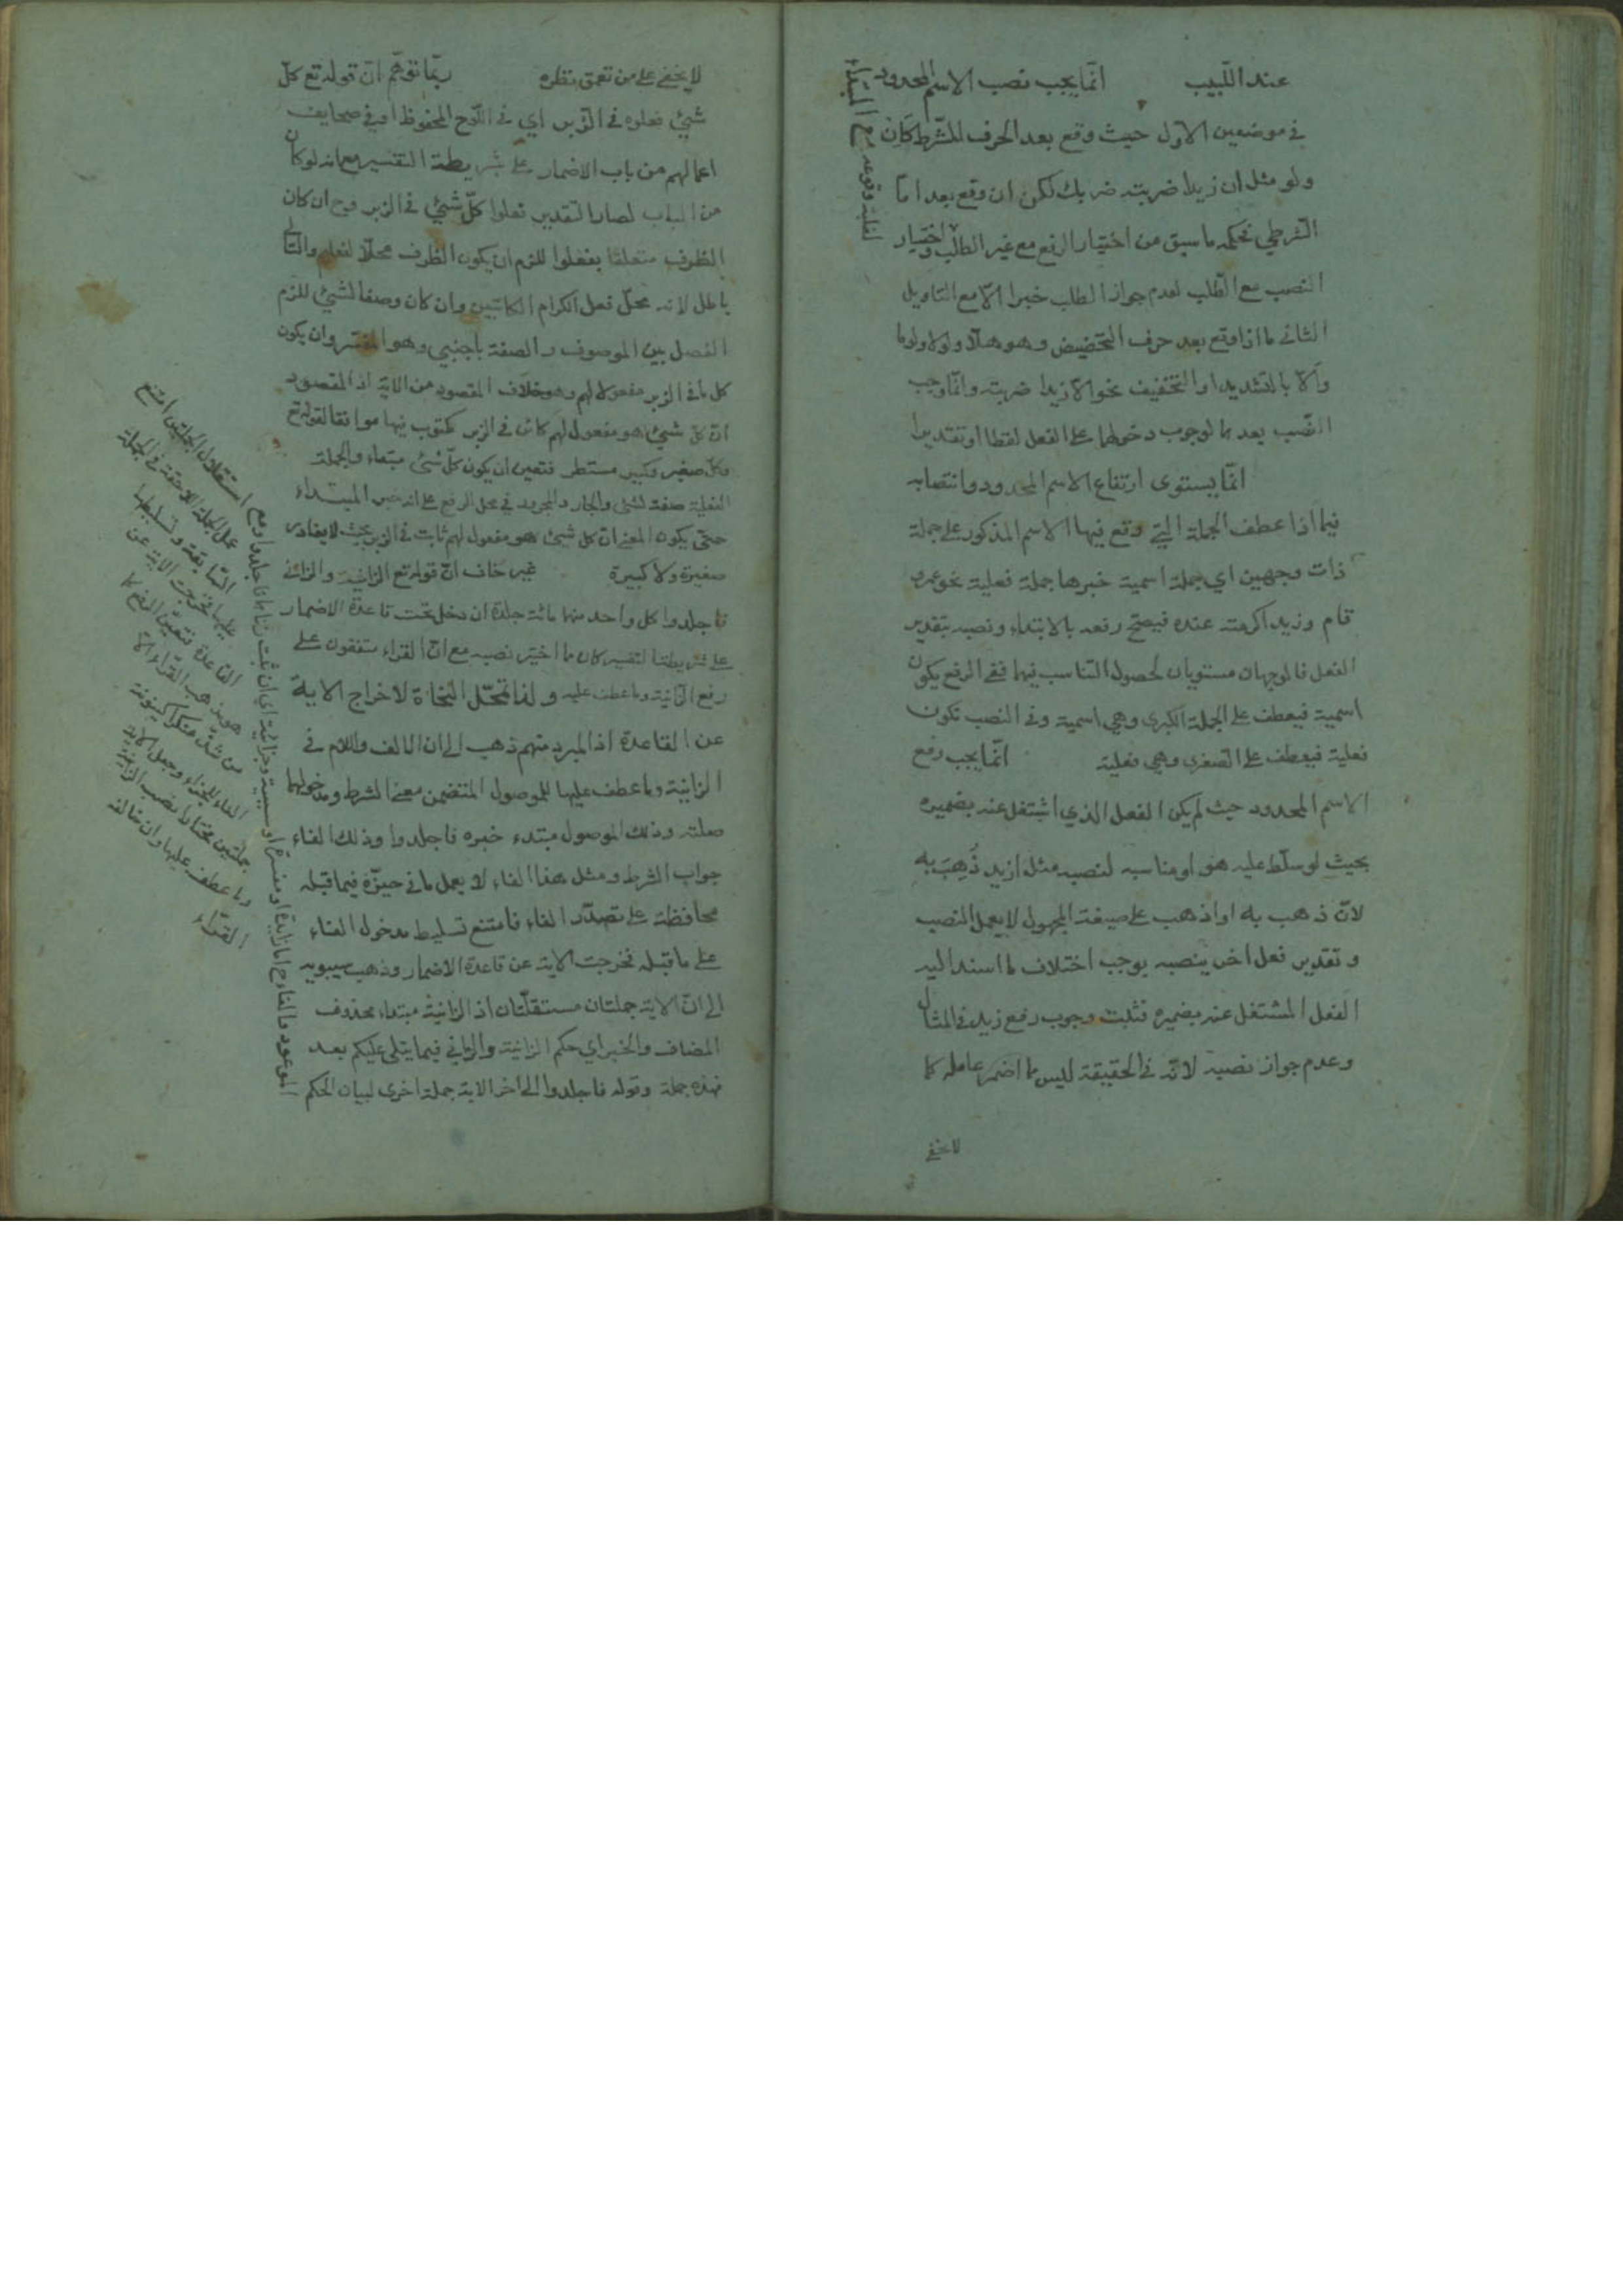 عند اللّبيب انّما يجب نصب الاسم المحدود
في موضعين الاول حيث وقع بعد الحرف للشّرط كان
ولو مثل ان زيدا ضربته ضربك لكن ان وقع بعد امّا
الشرطي فحكمه ما سبق من اختيار الرفع مع غير الطلب واختيار
النصب مع الطّلب لعدم جواز الطلب خبرا الّا مع التاويل
الثاني ما اذا وقع بعد حرف التحضيض وهو هلّا ولولا ولوما
والّا بالتشديد او التخفيف نحو الّا زيدا ضربته وانّما وجب
النّصب بعدها لوجوب دخولها على الفعل لفظا او تقديرا
انّما يستوى ارتفاع الاسم المحدود وانتصابه
فيما اذا عطف الجملة الّتي وقع فيها الاسم المذكور على جملة
ذات وجهين اي جملة اسمية خبرها جملة فعلية نحو عمرو
قام وزيد اكرمته عنده فيصحّ رفعه بالابتداء ونصبه بتقدير
الفعل فالوجهان مستويان لحصول التناسب فيهما ففي الرفع يكون
اسمية فيعطف على الجملة الكبرى وهي اسمية وفي النصب تكون
فعلية فيعطف على الصغرى وهي فعلية انّما يجب رفع
الاسم المحدود حيث لم يكن الفعل الذي اشتغل عنه بضميره
بحيث لو سلّط عليه هو او مناسبه لنصبه مثل ازيد ذُهِبَ به
لانّ ذهب به او اذهب على صيغة المجهول لا يعمل النصب
وتقدير فعل اخر ينصبه يوجب اختلاف ما اسند اليه
الفعل المشتغل عنه بضميره فثبت وجوب رفع زيد في المثال
وعدم جواز نصبه لانّه في الحقيقة ليس مما اضمر عامله كما
لا يخفى
لغلبة وقوعه مع المبتداء
لا يخفى على من تعمق نظره ربّما توهّم انّ قوله تع كلّ
شيئ فعلوه في الزّبر اي في اللّوح المحفوظ او في صحايف
اعمالهم من باب الاضمار على شريطة التفسير مع انه لو كان
من الباب لصار التقدير فعلوا كلّ شيئ في الزبر وح ان كان
الظرف متعلقا بفعلوا للزم ان يكون الظرف محلّا لفعلهم والتّالي
باطل لانه محلّ فعل الكرام الكاتبين وان كان وصفا لشيئ للزم
الفصل بين الموصوف والصفة باجنبي وهو المفسّر وان يكون
كل ما في الزبر مفعولا لهم وهو خلاف المقصود من الاية اذ المقصود
انّ كلّ شيئ هو مفعول لهم كائن في الزبر مكتوب فيها موافقا لقوله تع
وكلّ صغير وكبير مستطر فتعين ان يكون كلّ شيئ مبتداء والجملة
الفعلية صفة لشئ والجار والمجرور في محل الرفع على انه خبر المبتداء
حتّى يكون المعنى انّ كل شيئ هو مفعول لهم ثابت في الزبر بحيث لا يغادر
صغيرة ولا كبيرة غير خاف انّ قوله تع الزانية والزاني
فاجلدوا كل واحد منهما مائة جلدة ان دخل تحت قاعدة الاضمار
على شريطة التفسير كان مما اختير نصبه مع انّ القراء متفقون على
رفع الزانية وما عطف عليه ولذا تمحّل النحاة لاخراج الاية
عن القاعدة اذ المبرد منهم ذهب الى ان الالف واللام في
الزانية وما عطف عليها للموصول المتضمن معنى الشرط ومدخولها
صلته وذلك الموصول مبتدء خبره فاجلدوا وذلك الفاء
جواب الشرط ومثل هذا الفاء لا يعمل ما في حيّزه فيما قبله
محافظة على تصدّر الفاء فامتنع تسليط مدخول الفاء
على ما قبله فخرجت الاية عن قاعدة الاضمار وذهب سيبويه
الى انّ الاية جملتان مستقلّتان اذ الزانية مبتداء محذوف
المضاف والخبر اي حكم الزانية والزاني فيما يتلى عليكم بعد
فهذه جملة وقوله فاجلدوا الى اخر الاية جملة اخرى لبيان الحكم
الموعود فالفاء ح اما زايدة او مفسرة او سببية وجزائية اي ان ثبت زناهما فاجلدوا ومع
استقلال الجملتين امتنع
عمل الجملة اللاحقة في الجملة
السّابقة وتسليطها
عليها فخرجت الاية عن
القاعدة فتعيّن الرفع كما
هو مذهب القرّاء الّا
من شذّ منكرا كينونة
الفاء للجزاء وجعل الاية
جملتين مختارا نصب الزانية
وما عطف عليها وان خالفه
القرّاء